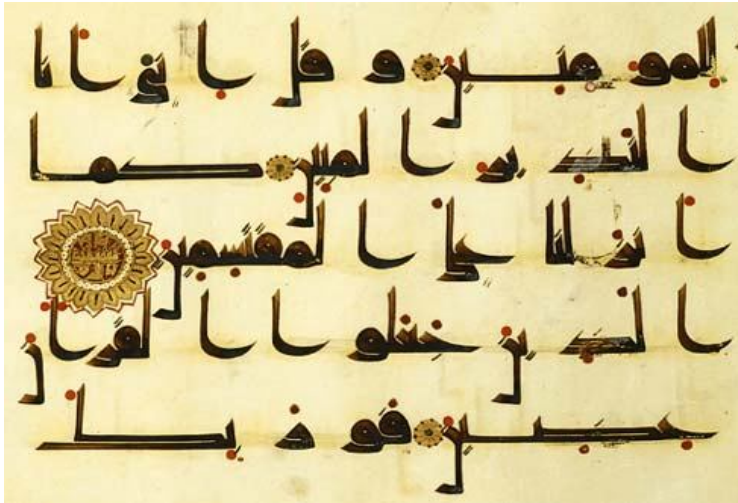 للمومنين و قل اني انا
النذير المبين كما
انزلنا على المقتسمين
الذين جعلوا القران
عضين فو ربك